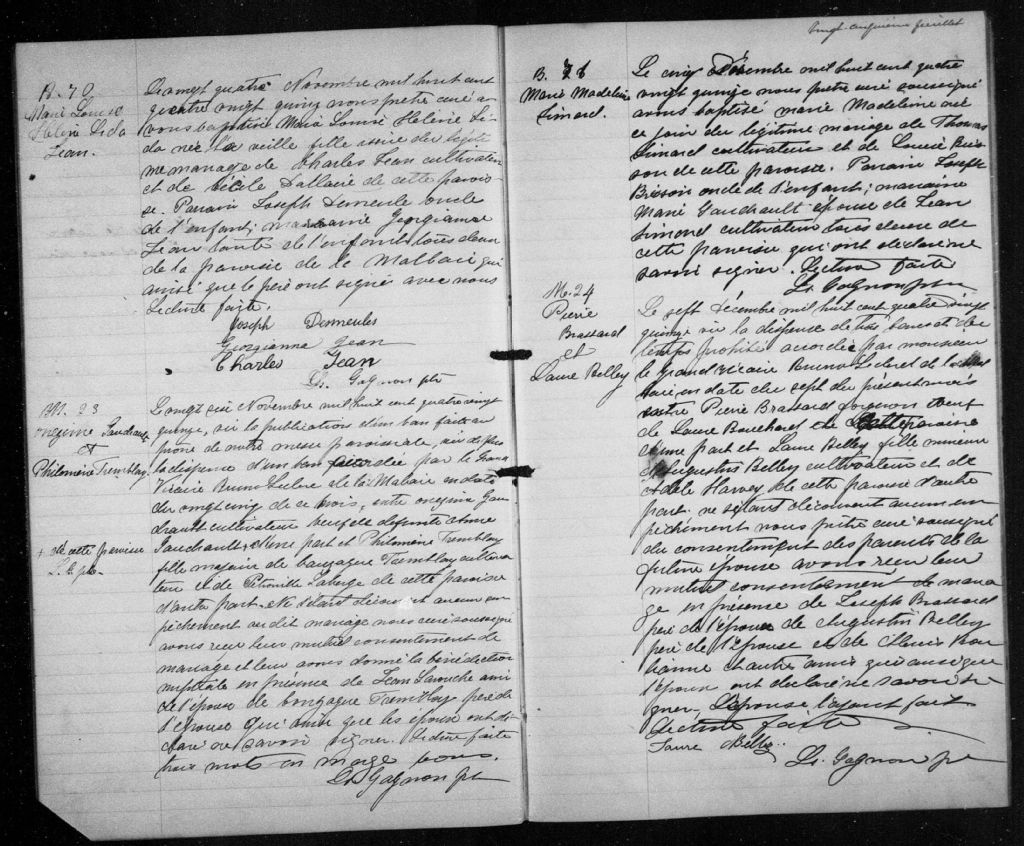 B. 70
Marie Louise
Hélène Lida
Jean.
Le vingt quatre Novembre mil huit cent
quatre vingt quinze nous pretre curé a-
vons baptisé Marie Louise Hélène Li-
da née la veille fille issue du légiti-
me mariage de Charles Jean cultivateur
et de Cécile Dallaire de cette parois-
se. Parrain Joseph Desmeules oncle
de l'enfant; marraine Georgianna
Jean tante de l'enfant tous deux
de la paroisse de la Malbaie qui
ainsi que le père ont signé avec nous
Lecture faite.
Joseph Desmeules
Georgianna Jean
Charles Jean
Ls. Gagnon ptr
M. 23
Onezime Gaudrault
et
Philomène Tremblay
Le vingt six Novembre mil huit cent quatre vingt
quinze, vu la publication d'un ban faite au
prone de notre messe paroissiale, vu de plus
la dispense d'un ban accordée par le Grand
Vicaire Bruno Leclerc de la Malbaie en date
du vingt cinq de ce mois, entre Onezime Gau-
drault cultivateur veuf de défunte
+ de cette paroisse
L. G. ptr.
Gaudrault + d'une part et Philomène Tremblay
fille majeure de Tremblay cultiva-
teur et de Pétronille Laberge de cette paroisse
d'autre part. Ne s'étant découvert aucun em-
pêchement au dit mariage nous curé soussigné
avons reçu leur mutuel consentement de
mariage et leur avons donné la bénédiction
nuptiale en présence de Jean Larouche ami
de l'époux de Tremblay père de
l'épouse qui ainsi que les époux ont dé-
claré ne savoir signer. Lecture faite
trois mots en marge bons.
Ls. Gagnon ptr
Vingt-cinquième feuillet
B. 71
Marie Madeleine
Simard.
Le cinq Décembre mil huit cent quatre
vingt quinze nous pretre curé soussigné
avons baptisé Marie Madeleine née
ce jour du légitime mariage de Thomas
Simard cultivateur et de Louise Bris-
son de cette paroisse. Parrain Joseph
Brisson oncle de l'enfant; marraine
Marie Gaudrault épouse de Jean
Simard cultivateur tous deux de
cette paroisse qui ont déclaré ne
savoir signer. Lecture faite
Ls. Gagnon ptr
M. 24
Pierre
Brassard
et
Laure Belley
Le sept décembre mil huit cent quatre vingt
quinze vu la dispense de trois bans et de
temps prohibé accordée par monsieur
le Grand Vicaire Bruno Leclerc de la Mal-
baie, en date du sept du present mois
entre Pierre Brassard
de Laure Bouchard de cette paroisse
d'une part et Laure Belley fille mineure
d'Augustin Belley cultivateur et de
Adèle Harvey de cette paroisse d'autre
part. ne s'étant découvert aucun em-
pêchement nous prêtre curé soussigné
du consentement des parents de la
future épouse avons reçu leur
mutuel consentement de maria-
ge en présence de Joseph Brassard
père de l'époux de Augustin Belley
père de l'épouse et de
et autres amis qui ainsi que
l'époux ont déclaré ne savoir si-
gner, l'épouse l'ayant fait
Lecture faite
Laure Belley
Ls. Gagnon ptr